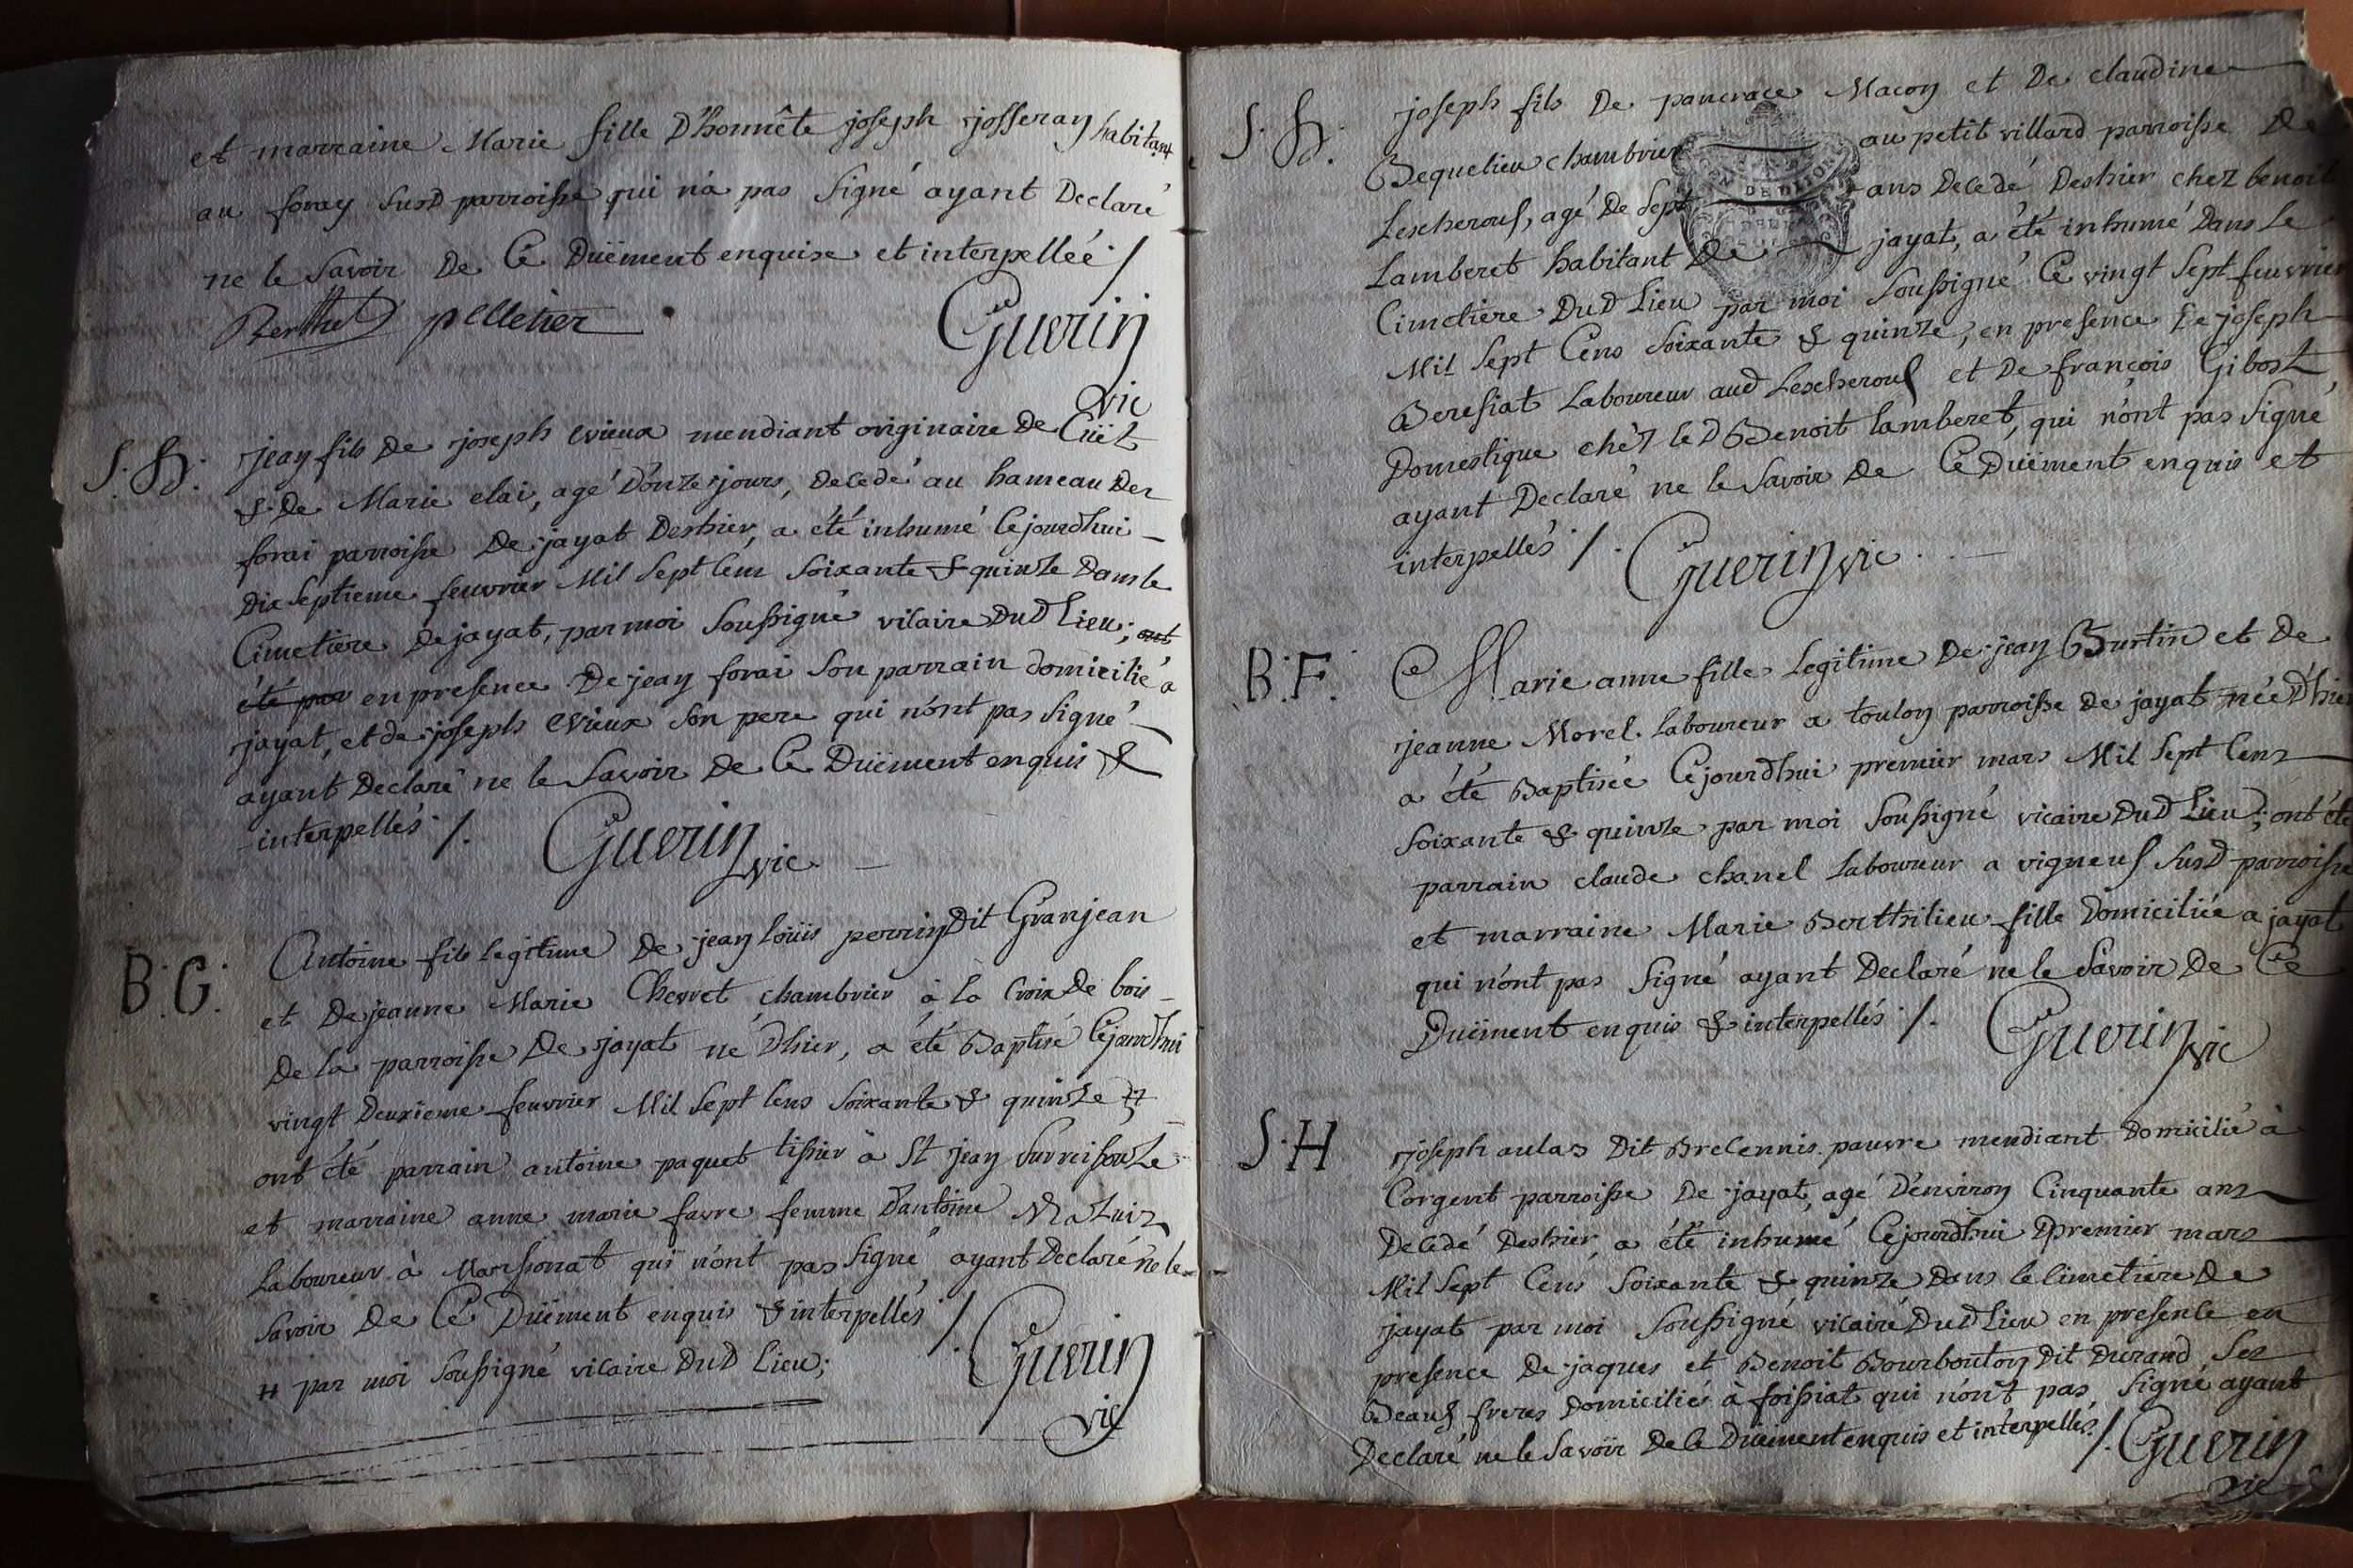 et marraine Marie fille D'honnête joseph josseran habitant
au foray susd parroisse qui n'a pas signé ayant Declaré
ne le savoir De Ce Düement enquise et interpellée /
Berthet pelletier
Guerin
vic
S. H. jean fils De joseph vieux mendiant originaire De Cüet
& De Marie clai, agé D'onze jours, Decedé au hameau Des
forai parroisse De jayat Deshier, a été inhumé Cejourdhui
Dix septieme feuvrier Mil sept Cens soixante & quinze Dans le
Cimetiere De jayat, par moi soussigné vicaire Dud Lieu; ont
été par en presence De jean forai son parrain domicilié a
jayat, et de joseph vieux son pere qui n'ont pas signé
ayant Declaré ne le savoir De Ce Düement enquis &
interpellés /.
Guerin vic
B. G. Antoine fils legitime De jean loüis perrin Dit Granjean
et De jeanne Marie Chevret chambrier à la Croix De bois
De la parroisse De jayat né Dhier, a été Baptisé Cejourdhui
vingt Deuxieme feuvrier Mil sept Cens soixante & quinze #
ont été parrain antoine paquet tissier à St jean sur reissouze
et marraine anne marie favre femme D'antoine
Laboureur à Marsonat qui n'ont pas signé ayant Declaré ne le
savoir De Ce Düement enquis & interpellés /.
# par moi soussigné vicaire Dud Lieu;
Guerin
vic
S. H. joseph fils De pancrace Macon et De claudine
Bequelieu chambrier au petit villard parroisse De
Lescherous, agé De sept ans Decedé Deshier chez benoit
Lamberet habitant De jayat, a été inhumé Dans le
Cimetiere Dud Lieu par moi soussigné Ce vingt sept feuvrier
Mil sept Cens soixante & quinze, en presence De joseph
Beresiat Laboureur aud Lescherous et De françois Gibost
Domestique chéz led Benoit lamberet, qui n'ont pas signé
ayant Declaré ne le savoir De Ce Düement enquis et
interpellés /.
Guerin vic.
B. F. Marie anne fille Legitime De jean Burtin et De
jeanne Morel. Laboureur a toulon parroisse De jayat née Dhier
a été Baptisée Cejourdhui premier mars Mil sept Cens
soixante & quinze par moi soussigné vicaire Dud Lieu; ont été
parrain claude chanel Laboureur a vigneus susd parroisse
et marraine Marie Berthilieu fille Domiciliée a jayat
qui n'ont pas signé ayant Declaré ne le savoir De Ce
Düement enquis & interpellés /.
Guerin vic
S. H joseph aulas Dit Brelennis pauvre mendiant Domicilié à
Corgent parroisse De jayat, agé D'environ Cinquante ans
Decedé Deshier, a été inhumé Cejourdhui premier mars
Mil sept Cens soixante & quinze Dans le Cimetiere De
jayat par moi soussigné vicaire Dud Lieu en presence en
presence De jaques et Benoit Bourbouton Dit Durand ses
Beaus freres Domiciliés à foissiat qui n'ont pas signé ayant
Declaré ne le savoir De Ce Düement enquis et interpellés /.
Guerin
vic